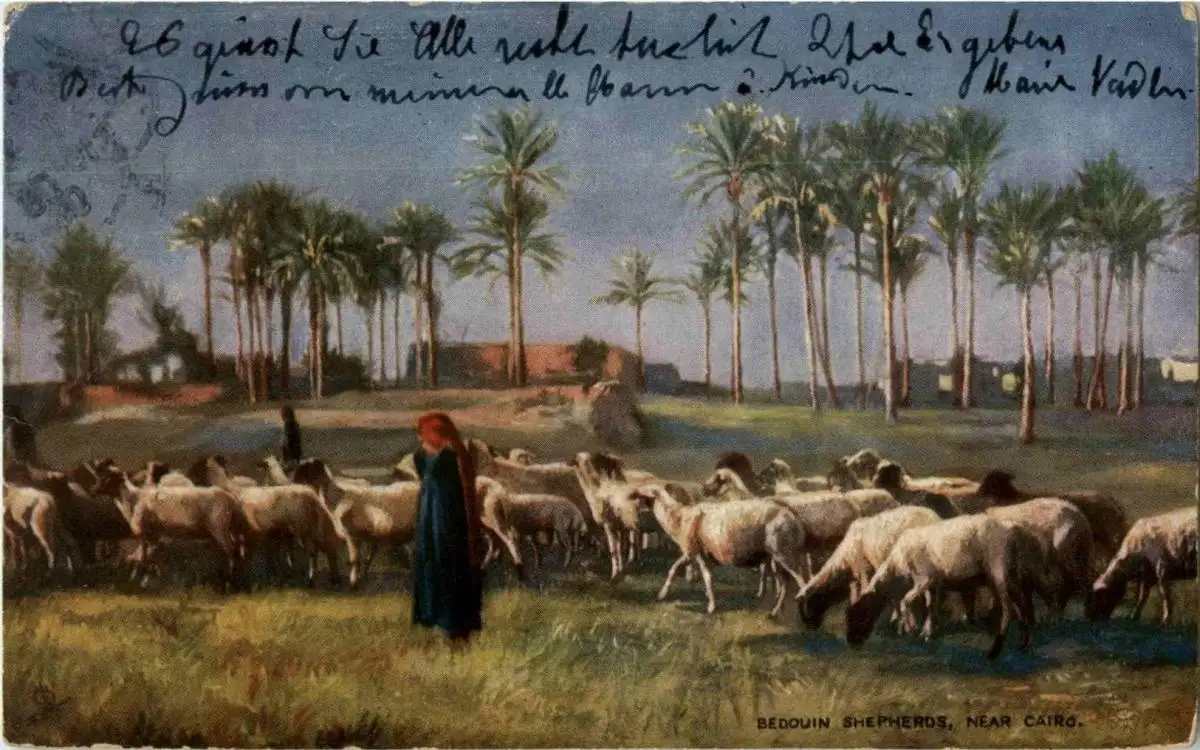 Es grüsst Sie Alle recht herzlich Ihre Ergebene
Beste Grüsse von meinem lb Mann u. Kinder. Marie
BEDOUIN SHEPHERDS, NEAR CAIRO.